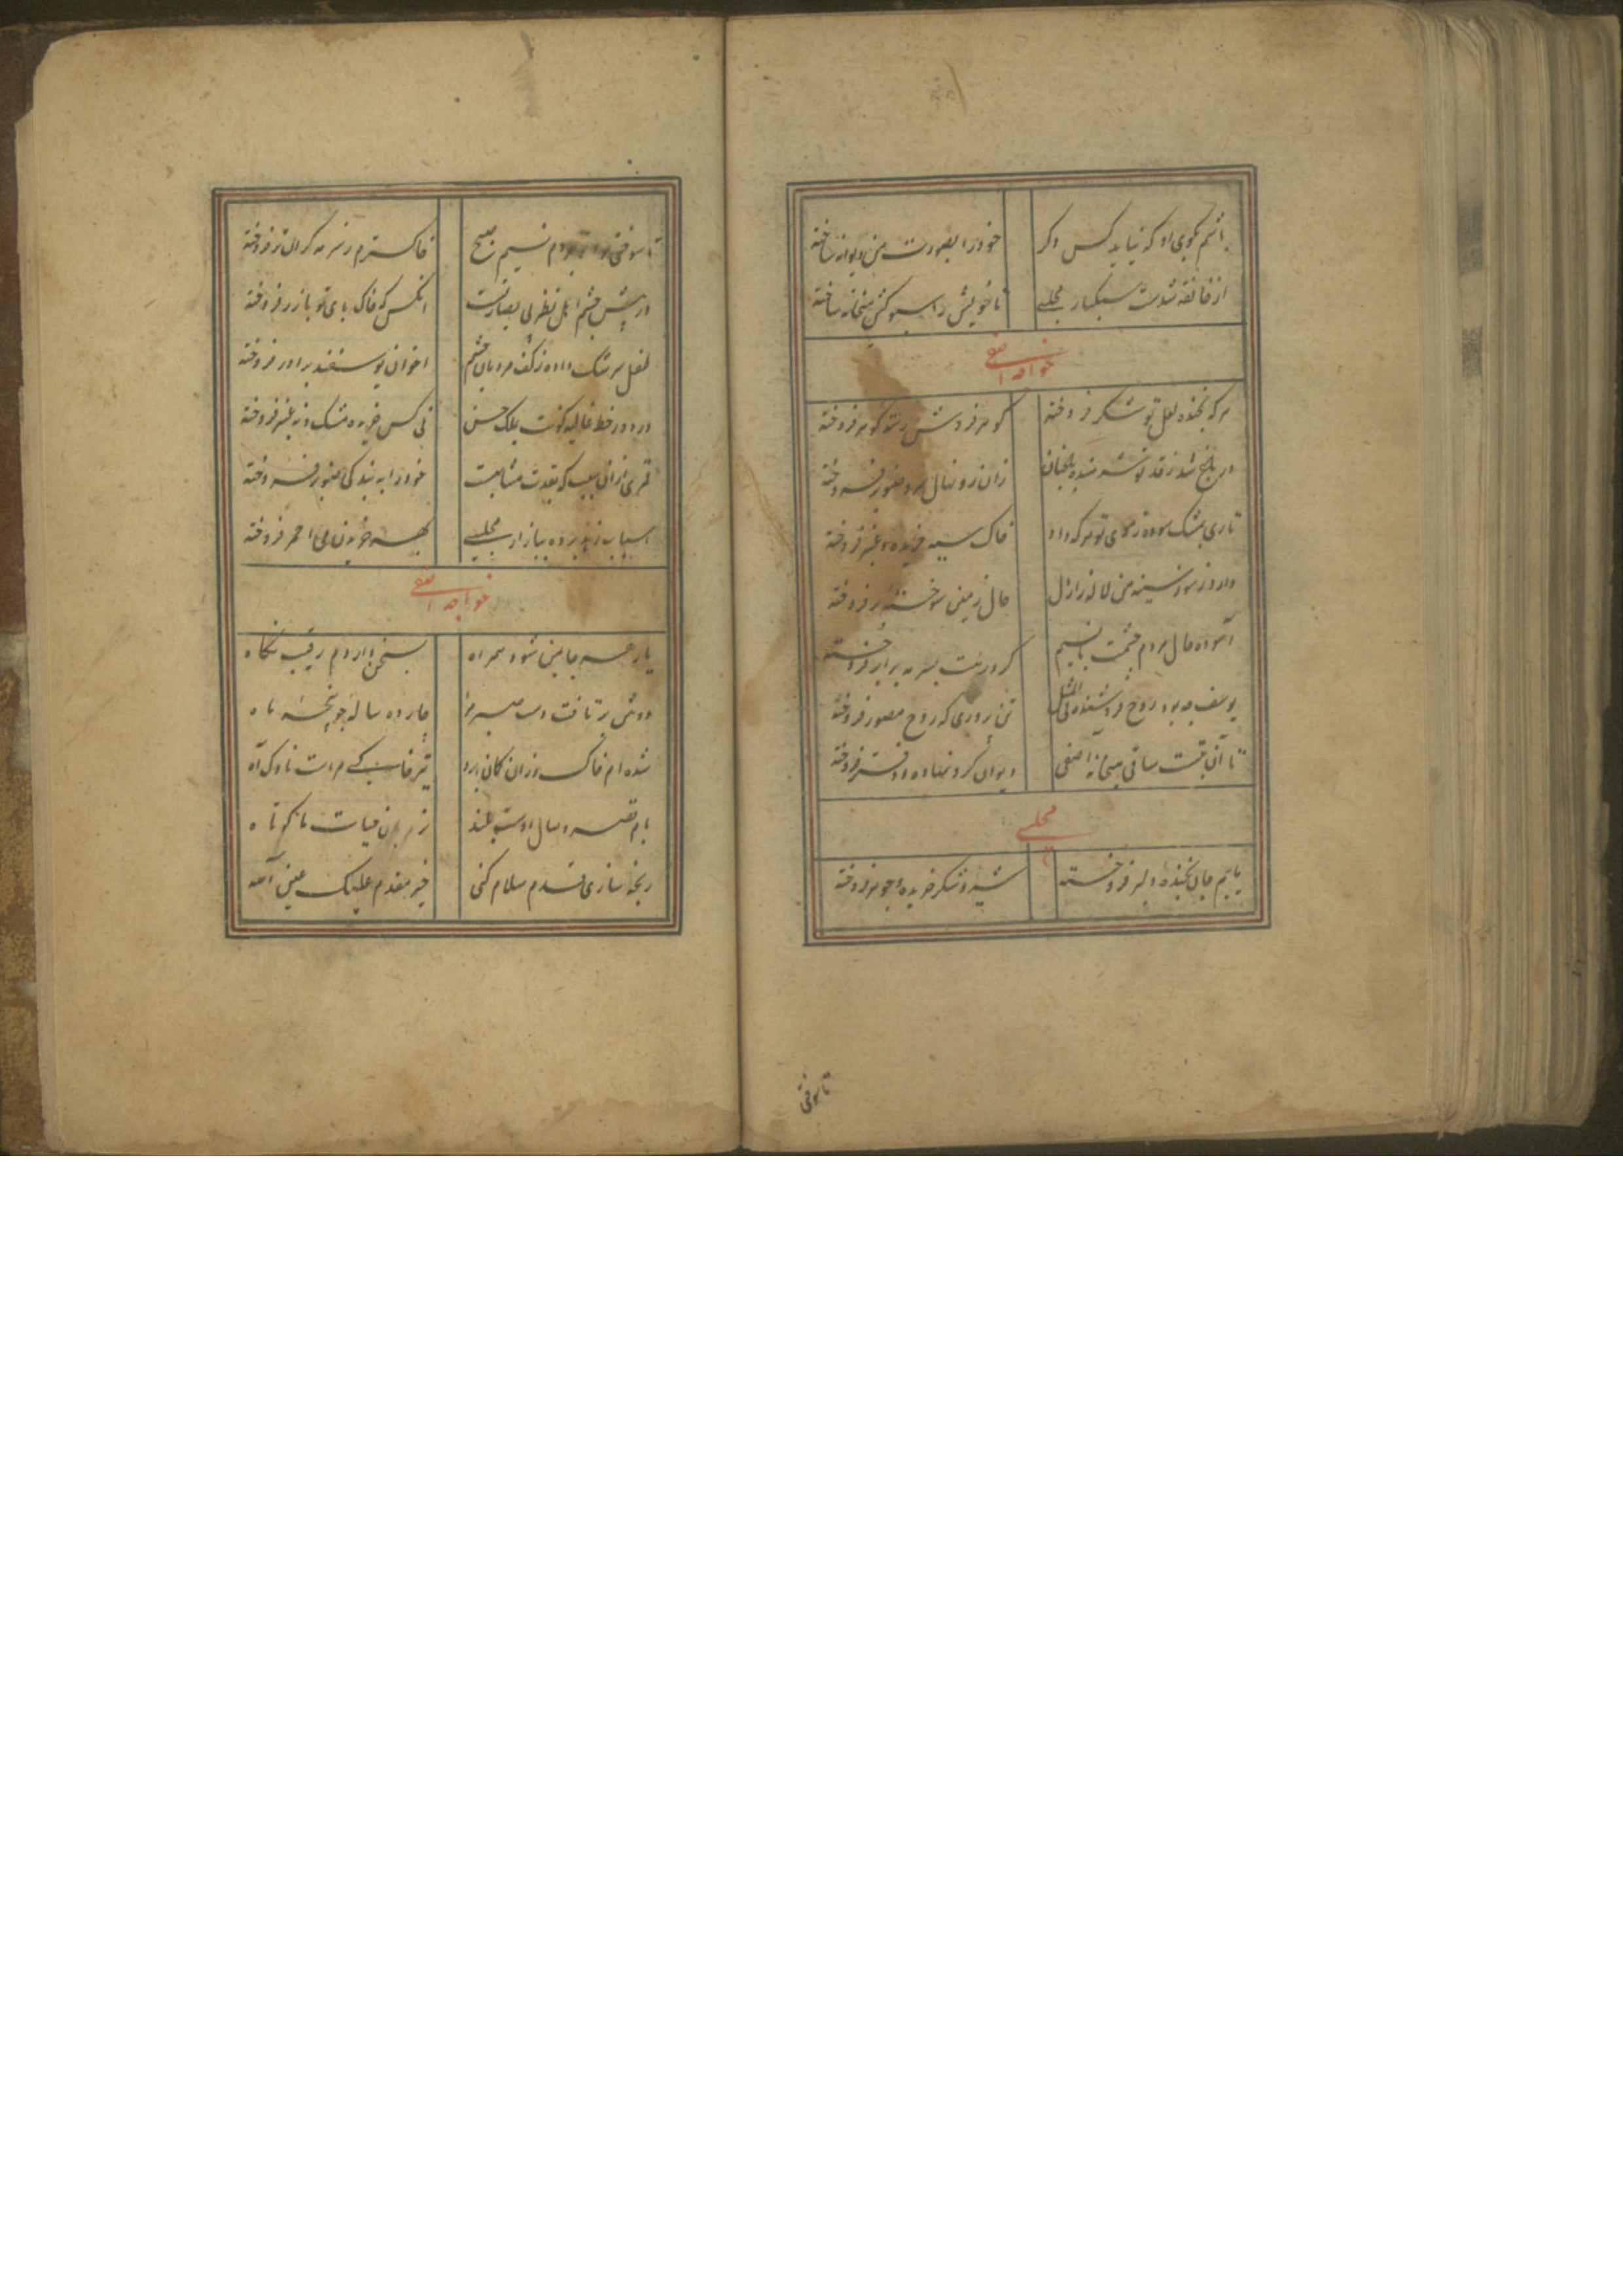 باشم بکوی او که نیاید کس دکر خود را بصورت من دیوانه ساخته
از خانقه شدست سبکبار مجلسی تا خویش را سبوکش میخانه ساخته
خواجه اصفی
هر که بخنده لعل تو شکر فروخته کوهرفروش رسته کوهر فروخته
در باغ شد ز قد تو شرمنده باغبان زان رو نهال سرو صنوبر فروخته
تاری بمشک سوده ز موی تو هر که داد خاک سیه خریده و عنبر فروخته
دارد ز سوز سینه من لاله زار دل
آسوده حال مردم چشمت
یوسف چه بود روح فروشنده فی المثل تن پروری که روح مصور فروخته
تا آن بتست ساقی میخانه اصفی دیوان کرو نهاده و دفتر فروخته
مجلسی
یا رب جان بخنده دلبر فروخته شیر و شکر خریده و جوهر فروخته
تا سوختی
تا سوختی مرا نسیم صبح خاکسترم ز سرمه کران تر فروخته
در پیش چشم اهل نظر بی بصارتست انکس که خاک پای تو با زر فروخته
طفل سرشک داده ز کف مردمان چشم اخوان یوسفند برادر فروخته
در دور خط غالیه کونت بملک حسن نی کس خریده مشک و نه عنبر فروخته
قمری ازان سبب که بقدت مشابهست خود را به بندکی صنوبر فروخته
اسباب زهد برده ببازار مجلسی بهر خریدن می احمر فروخته
خواجه اصفی
یار هر جا بمن شود همراه رقیب نکاه
دوش بر تافت دست چارده ساله
شده ام خاک وزان کمان ابرو تیر خاکی مراست ناوک آه
بام قصر وصال اوست بلند نردبان حیات ما کوتاه
رنجه سازی قدم سلام کنی خیر مقدم علیک عین الله